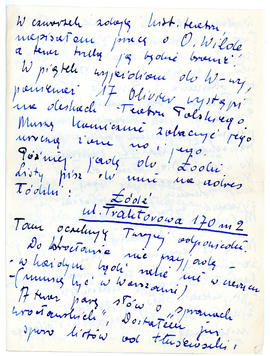 W czwartek zdaję hist. teatru
napisałem pracę o O. Wilde
a teraz trzeba ją będzie bronić.
W piątek wyjeżdżam do W-wy,
ponieważ 17 Olivier wystąpi
na deskach Teatru Polskiego.
Muszę koniecznie zobaczyć jego
uroczą żonę no i jego.
Później jadę do Łodzi
Listy pisz do mnie na adres
Łódzki:
Łódź
ul. Traktorowa 170 m 2
Tam oczekuję Twojej odpowiedzi.
Do Wrocławia nie przyjadę -
- w każdym bądź razie nie w czerwcu
- (muszę być w Warszawie)
A teraz parę słów o "sprawach
wrocławskich". Dostałem już
sporo listów od